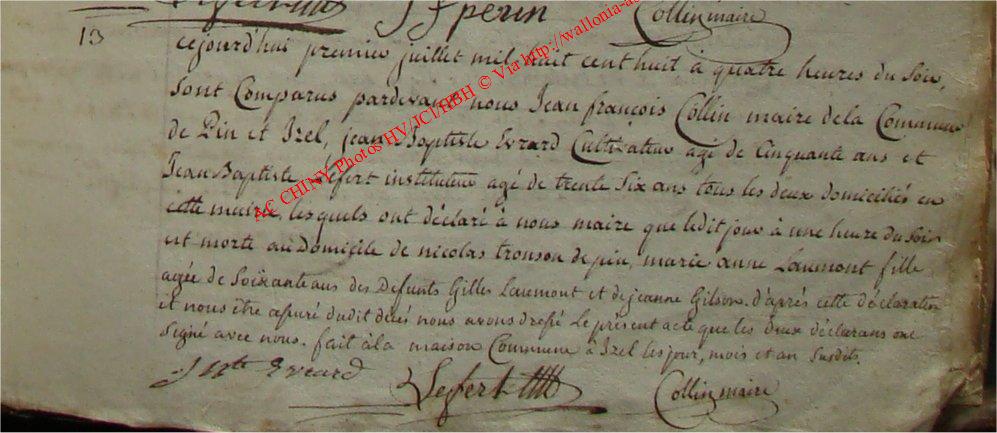 JJ perin Collin maire
13
cejourd'hui premier juillet mil huit cent huit à quatre heures du Soir,
Sont Comparus pardevant nous Jean françois Collin maire de la Commune
de Pin et Izel, jean Baptiste Evrard Cultivateur agé de Cinquante ans et
Jean Baptiste Lefert instituteur agé de trente Six ans tous les deux domiciliés en
cette mairie, lesquels ont déclaré à nous maire que ledit jour à une heure du Soir
est morte au Domicile de nicolas tronson de pin, marie anne Laumont fille
agée de Soixante ans des Defunts Gilles Laumont et de jeanne Gilson. d'après cette déclaration
et nous être assuré dudit décés nous avons dressé Le présent acte que les deux déclarans ont
Signé avec nous. fait à la maison Commune à Izel les jour, mois et an Susdits.
J Bte Evrard Lefert Collin maire
AC CHINY Photos HV/JCI/HBH © Via http://wallonia-as